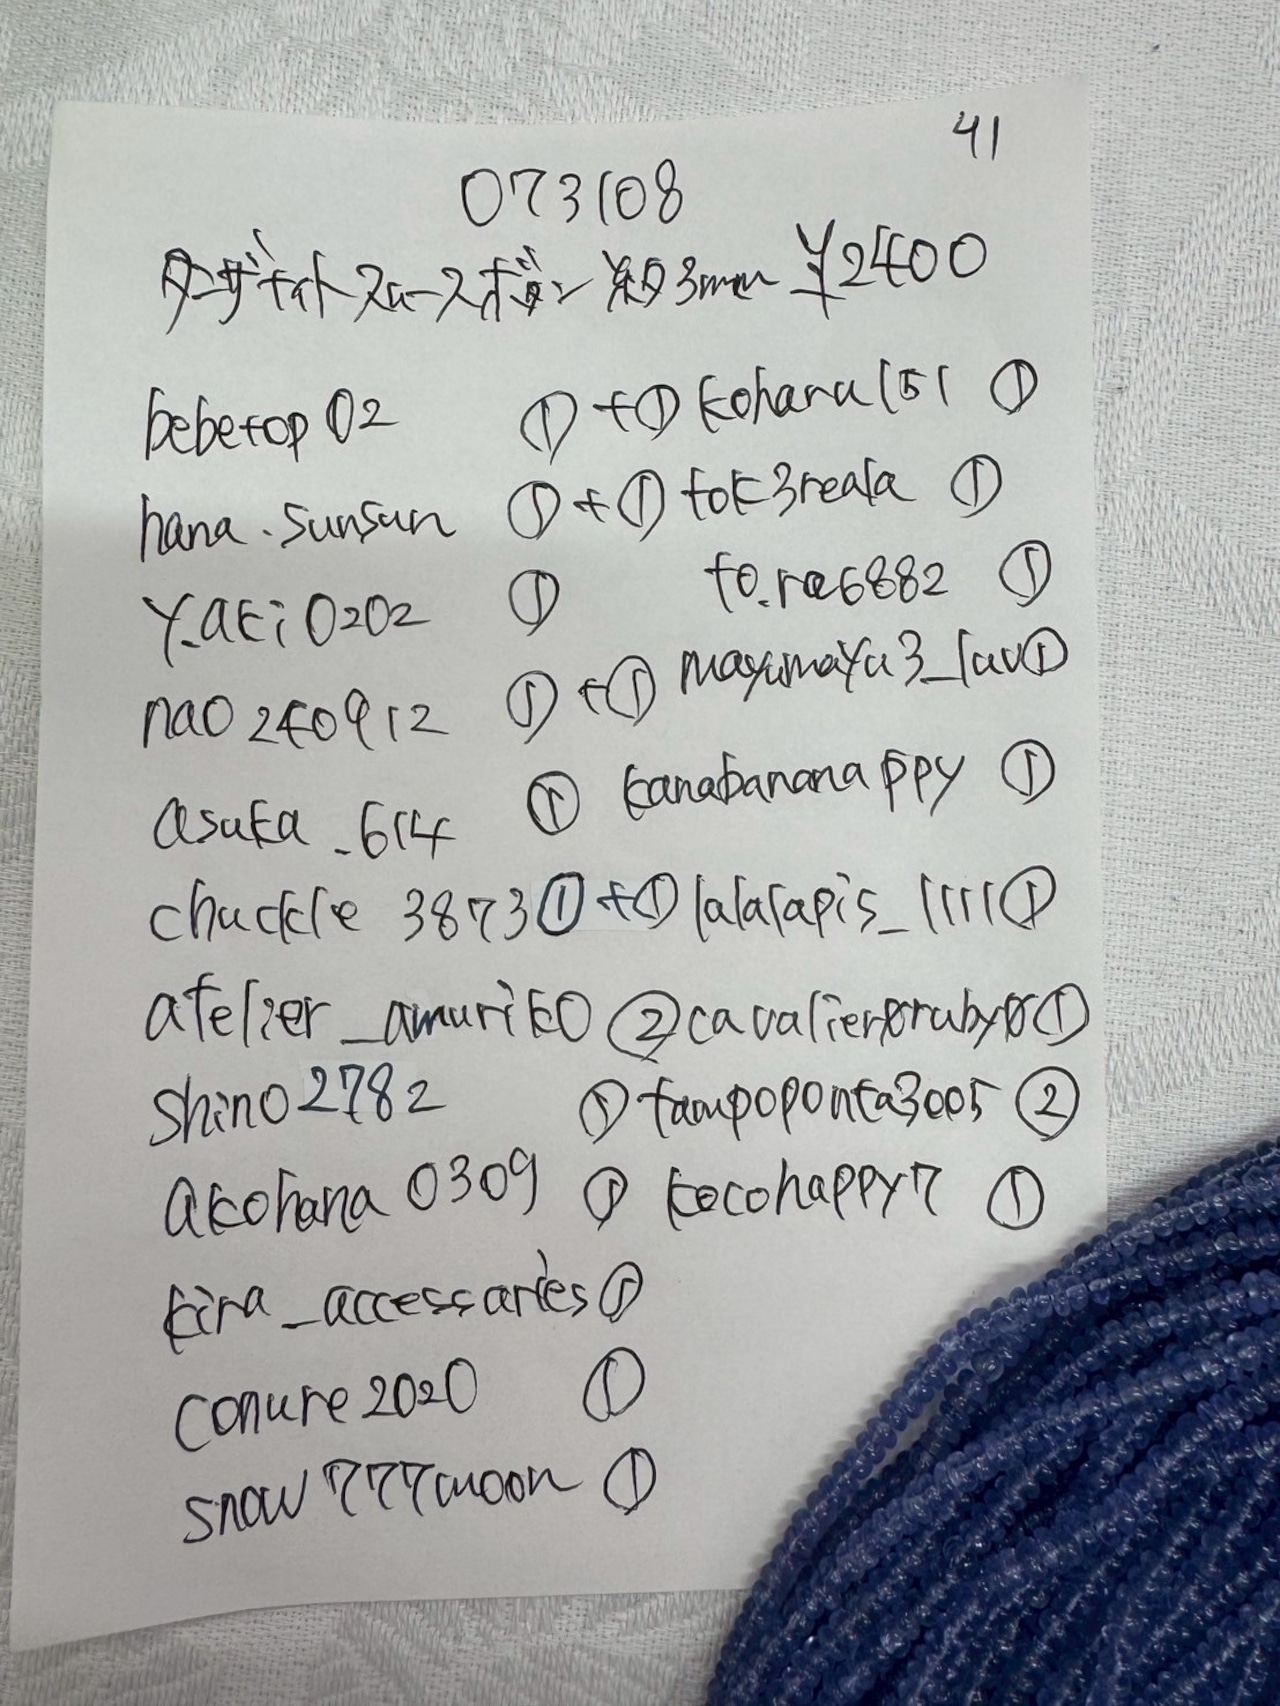 41
073108
タンザナイトスムースボタン 約3mm ¥2400
bebetop02 ①+① kohana151 ①
hana.sunsun ①+① tok3reala ①
y.aki0202 ① to.ra6882 ①
nao240912 ①+① mayumayu3_luv①
asuka_614 ① kanabananappy ①
chuckle 3873①+① lalalapis_1111①
atelier_amuriko ② cavalier0ruby0①
shino2782 ① tampoponta3005 ②
akohana0309 ① kocohappy7 ①
kira_accessaries①
conure2020 ①
snow777moon ①